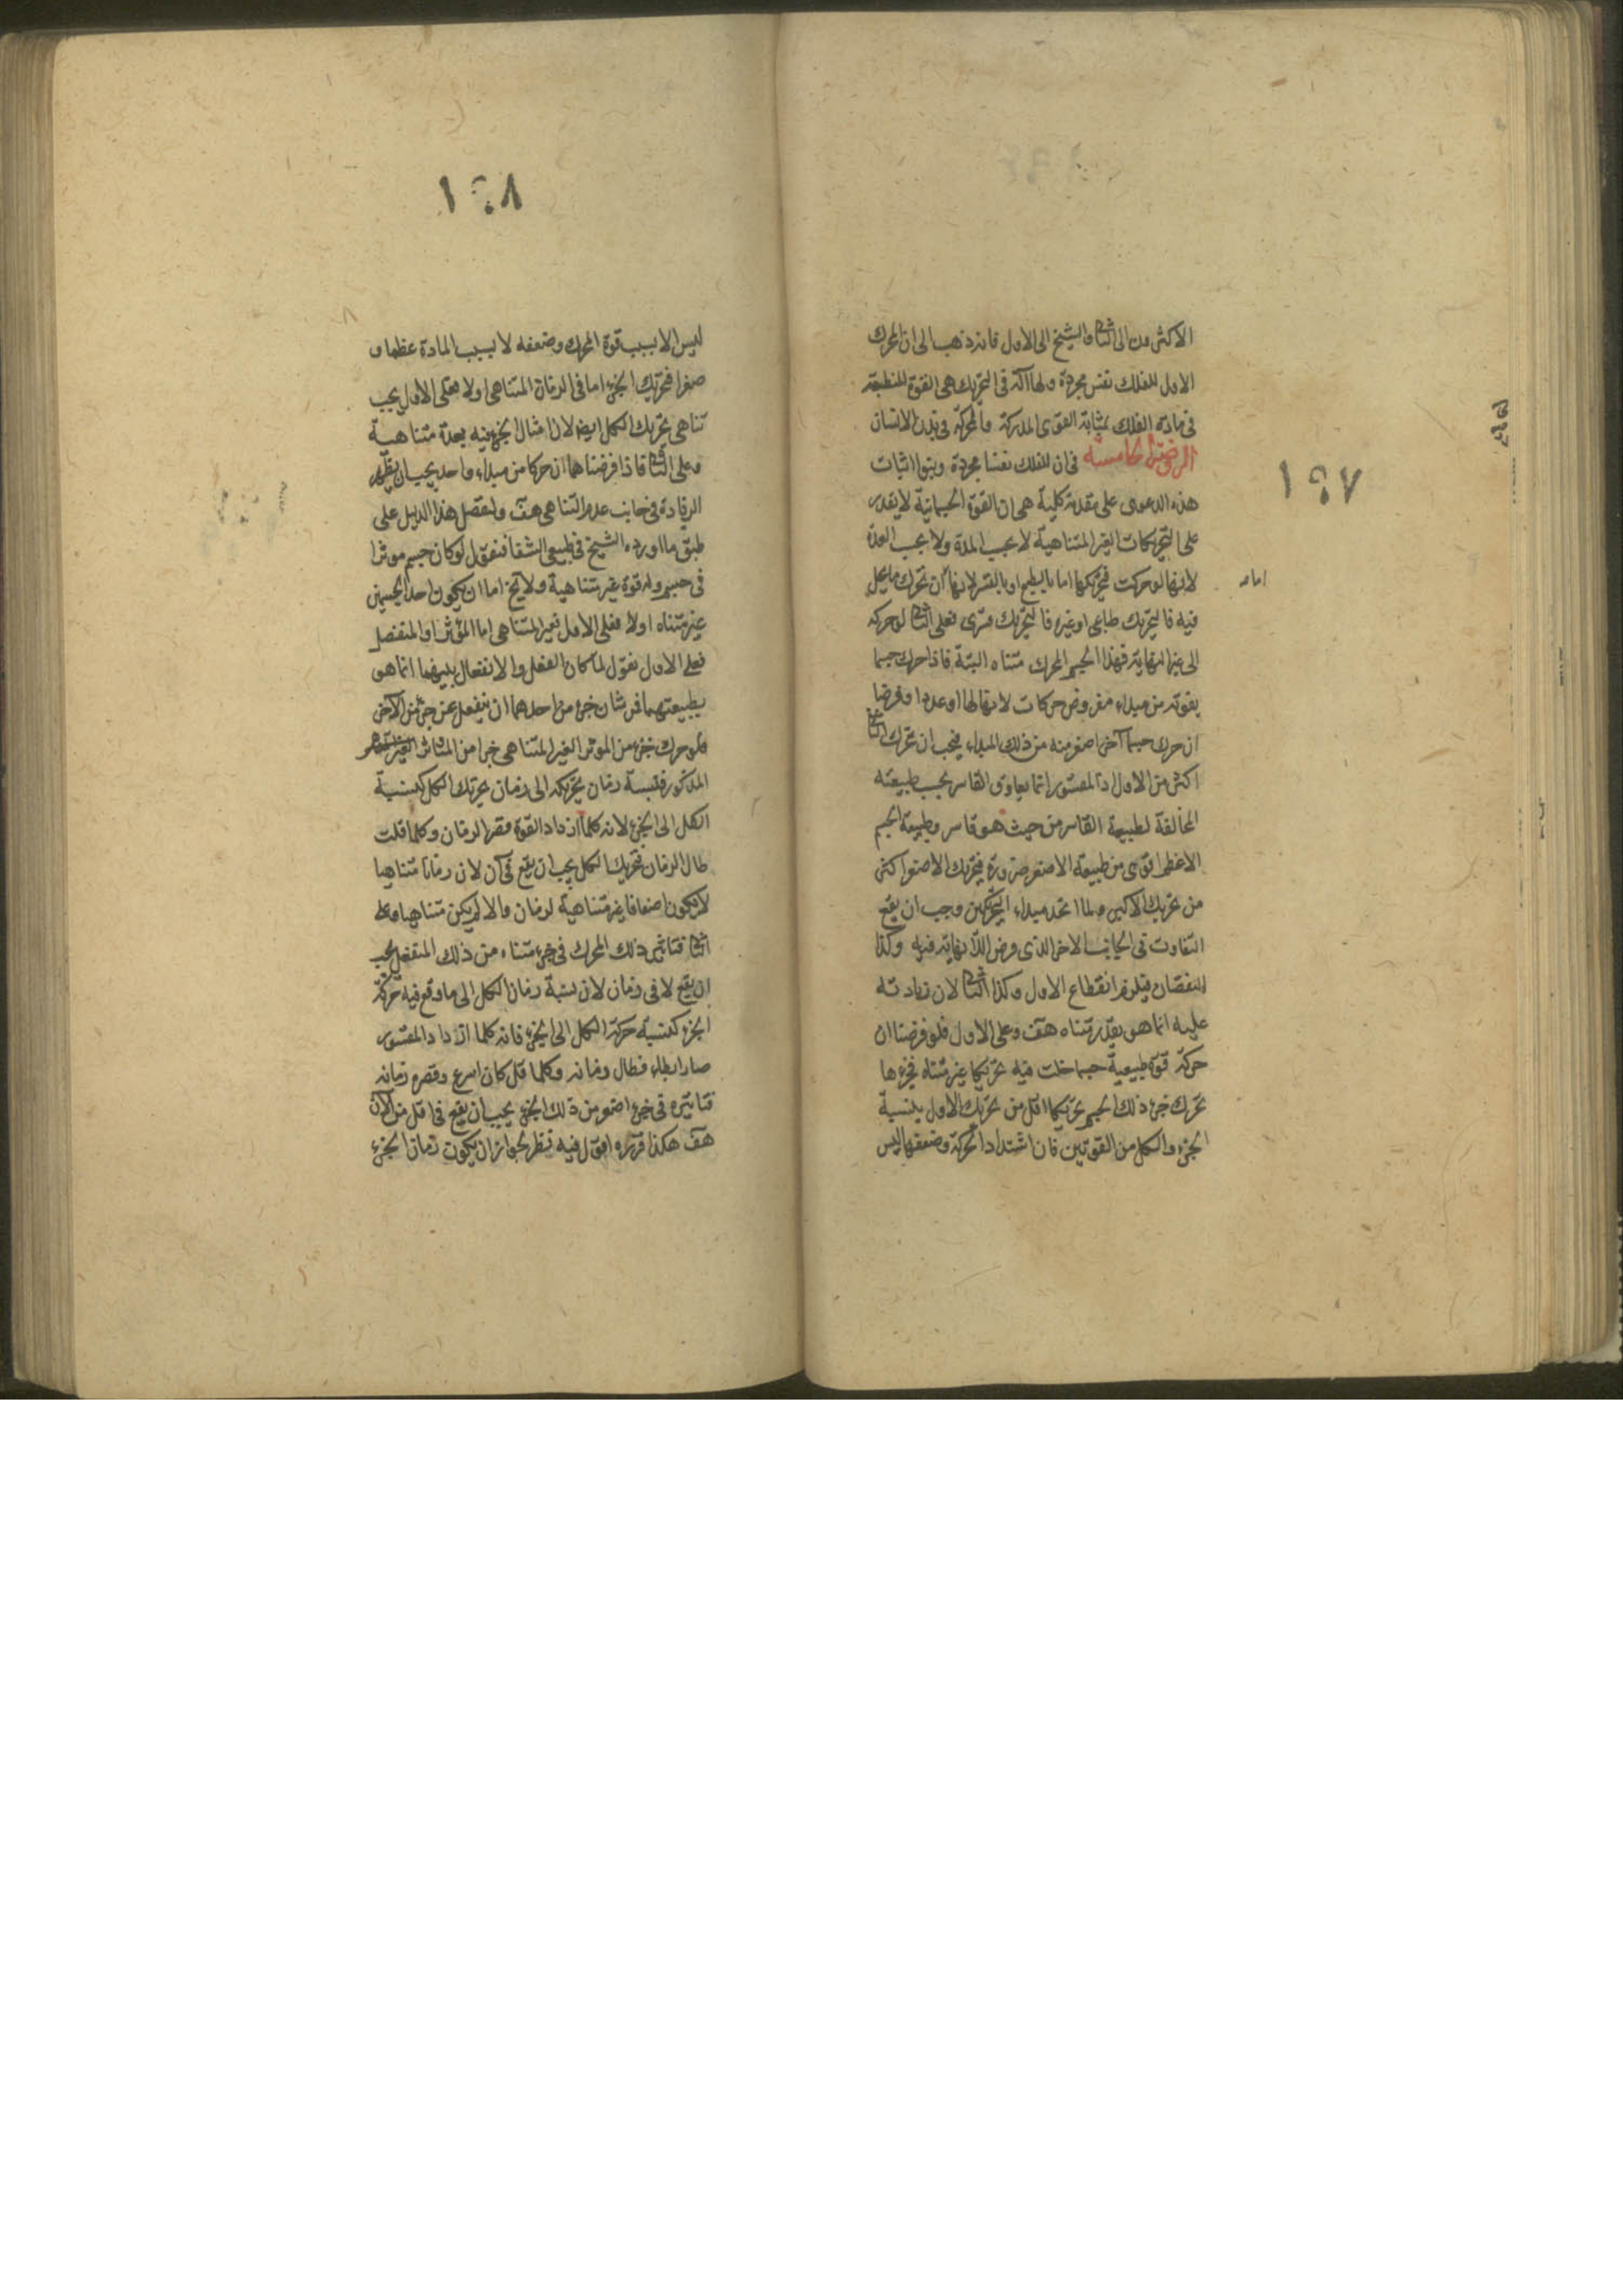 ١٩٧
الاكثرون الى الثانى والشيخ الى الاول فانه ذهب الى ان المحرك
الاول للفلك نفس مجردة ولها آلة فى التحريك هى القوة المنطبعة
فى مادة الفلك بمثابة القوى المدركة والمحركة فى بدن الانسان
الروضة الخامسة فى ان للفلك نفسا مجردة ويبتنى اثبات
هذه الدعوى على مقدمة كلية هى ان القوة الجسمانية لا يقدر
على التحريكات الغير المتناهية لا بحسب المدة ولا بحسب العدة
لانها لو حركت فتحريكها اما بالطبع او بالقسر لانها ان تحرك ما يحل
فيه فالتحريك طباعى او غيره فالتحريك قسرى فعلى الثانى لو حركه
الى غير النهاية فهذا الجسم المحرك متناه البتة فاذا حرك جسما
بقوته من مبداء مفروض حركات لا نهاية لها او عددا وفرضنا
ان حرك جسما آخر اصغر منه من ذلك المبداء فيجب ان تحرك الثانى
اكثر من الاول اذ المقسور انما يعاوق القاسر بحسب طبيعته
المخالفة لطبيعة القاسر من حيث هو قاسر وطبيعة الجسم
الاعظم اقوى من طبيعة الاصغر ضرورة فتحريك الاصغر اكثر
من تحريك الاكبر ولما اتحد مبداء التحريكين وجب ان يقع
التفاوت فى الجانب الاخر الذى فرض اللانهاية فيه وكذا
النقصان فيلزم انقطاع الاول وكذا الثانى لان زيادته
عليه انما هو بقدر متناه هف وعلى الاول فلو فرضنا ان
حركة قوة طبيعية جسما حلت فيه تحريكا غير متناه فجزءها
تحرك جزء ذلك الجسم تحريكا اقل من تحريك الاول بنسبة
الجزء والكل من القوتين فان اشتداد الحركة وضعفها ليس
١٩٨
ليس الا بسبب قوة المحرك وضعفه لا بسبب المادة عظما و
صغرا فتحريك الجزء اما فى الزمان المتناهى اولا فعلى الاول يجب
تناهى تحريك الكل ايضا لان امثال الجزء فيه بعدة متناهية
وعلى الثانى فاذا فرضناهما ان حركا من مبداء واحد يجب ان يظهر
الزيادة فى جانب عدم التناهى هف ولنفصل هذا الدليل على
طبق ما اورده الشيخ فى طبيعى الشفا فنقول لو كان جسم موثرا
فى جسم وله قوة غير متناهية ولا يخ اما ان يكون احد الجسمين
غير متناه اولا فعلى الاول فغير المتناهى اما المؤثر او المنفعل
فعلى الاول نقول لما كان الفعل والانفعال بينهما انما هو
بطبيعتهما فمن شان جزء من احدهما ان ينفعل عن جزء من الآخر
فلو حرك جزء من الموثر الغير المتناهى جزا من المتاثر
المذكور فنسبة زمان تحريكه الى زمان تحريك الكل كنسبة
الكل الى الجزء لانه كلما ازداد القوة قصر الزمان وكلما قلت
طال الزمان فتحريك الكل يجب ان يقع فى آن لان زمانا متناهيا
لا يكون اضعافا غير متناهية لزمان والا لم يكن متناهيا وعلى
الثانى فتاثير ذلك المحرك فى جزء متناه من ذلك المنفعل يجب
ان يقع لا فى زمان لان نسبة زمان الكل الى ما وقع فيه حركة
الجزء كنسبة حركة الكل الى الجزء فانه كلما ازداد المقسور
صار ابطاء فطال زمانه وكلما قل كان اسرع وقصر زمانه
فتاثيره فى جزء اصغر من ذلك الجزء يجب ان يقع فى اقل من الآن
هف هكذا قرره اقول فيه نظر لجواز ان يكون زمان الجزء